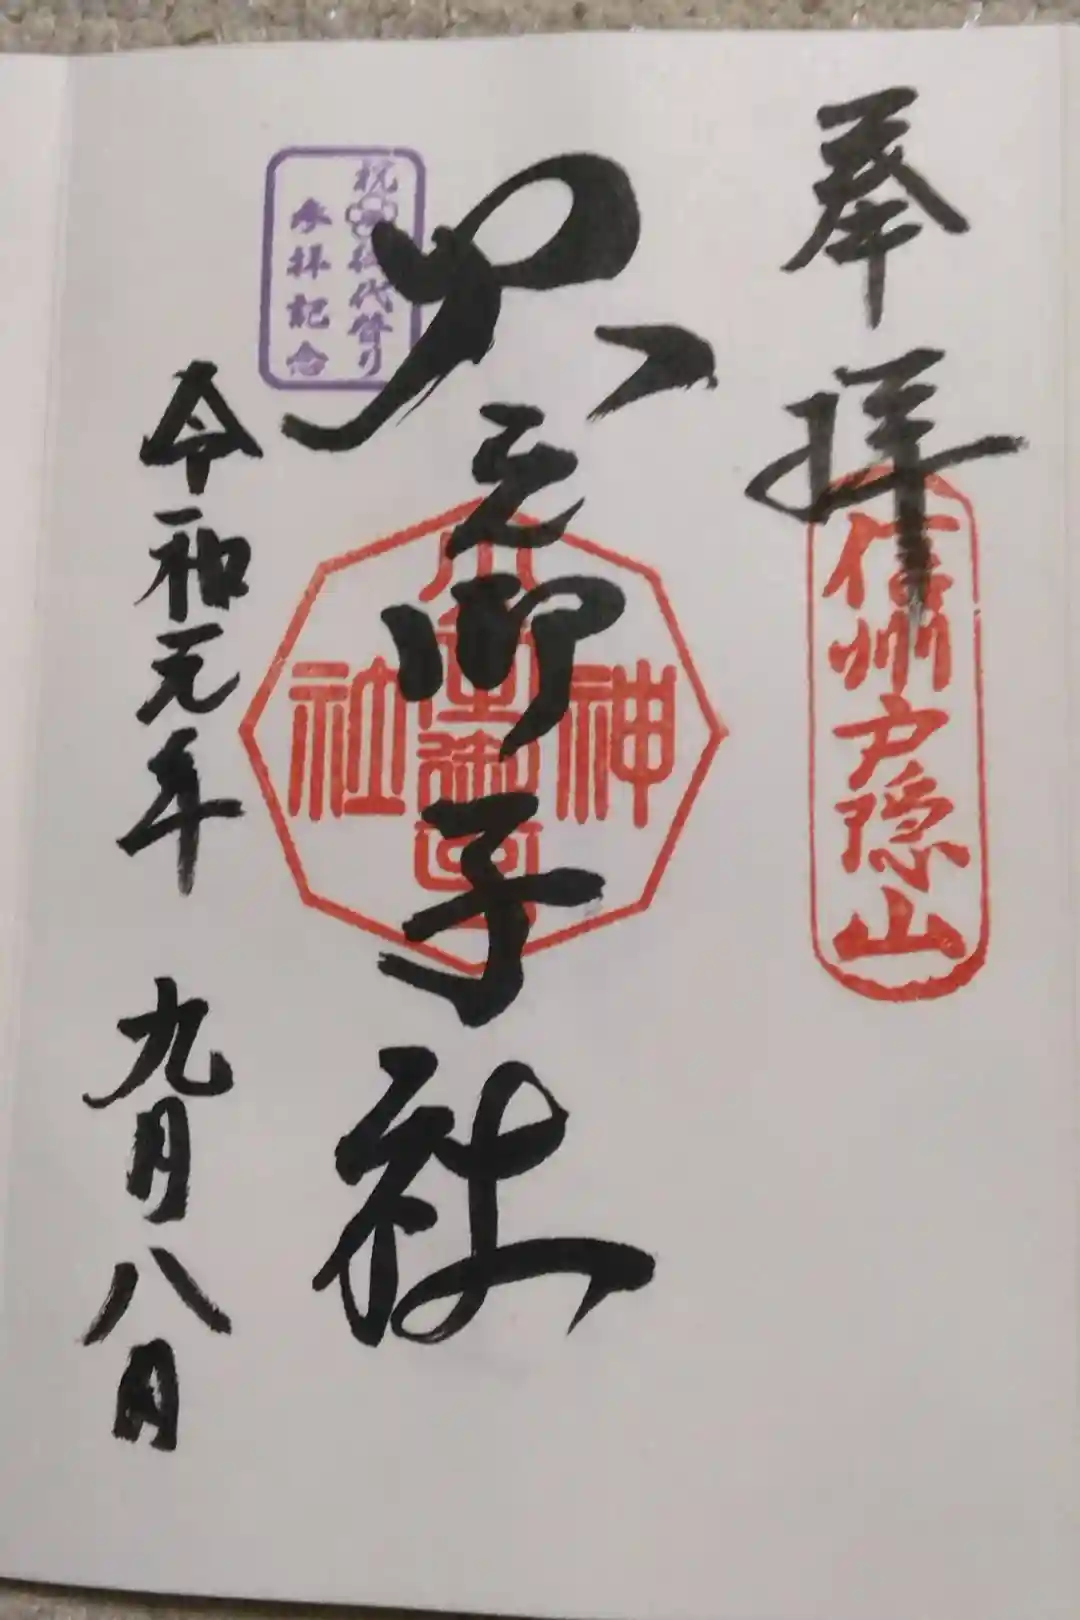 奉拝
信州戸隠山
火之御子社
神社
祝御代替り
参拝記念
令和元年 九月八日